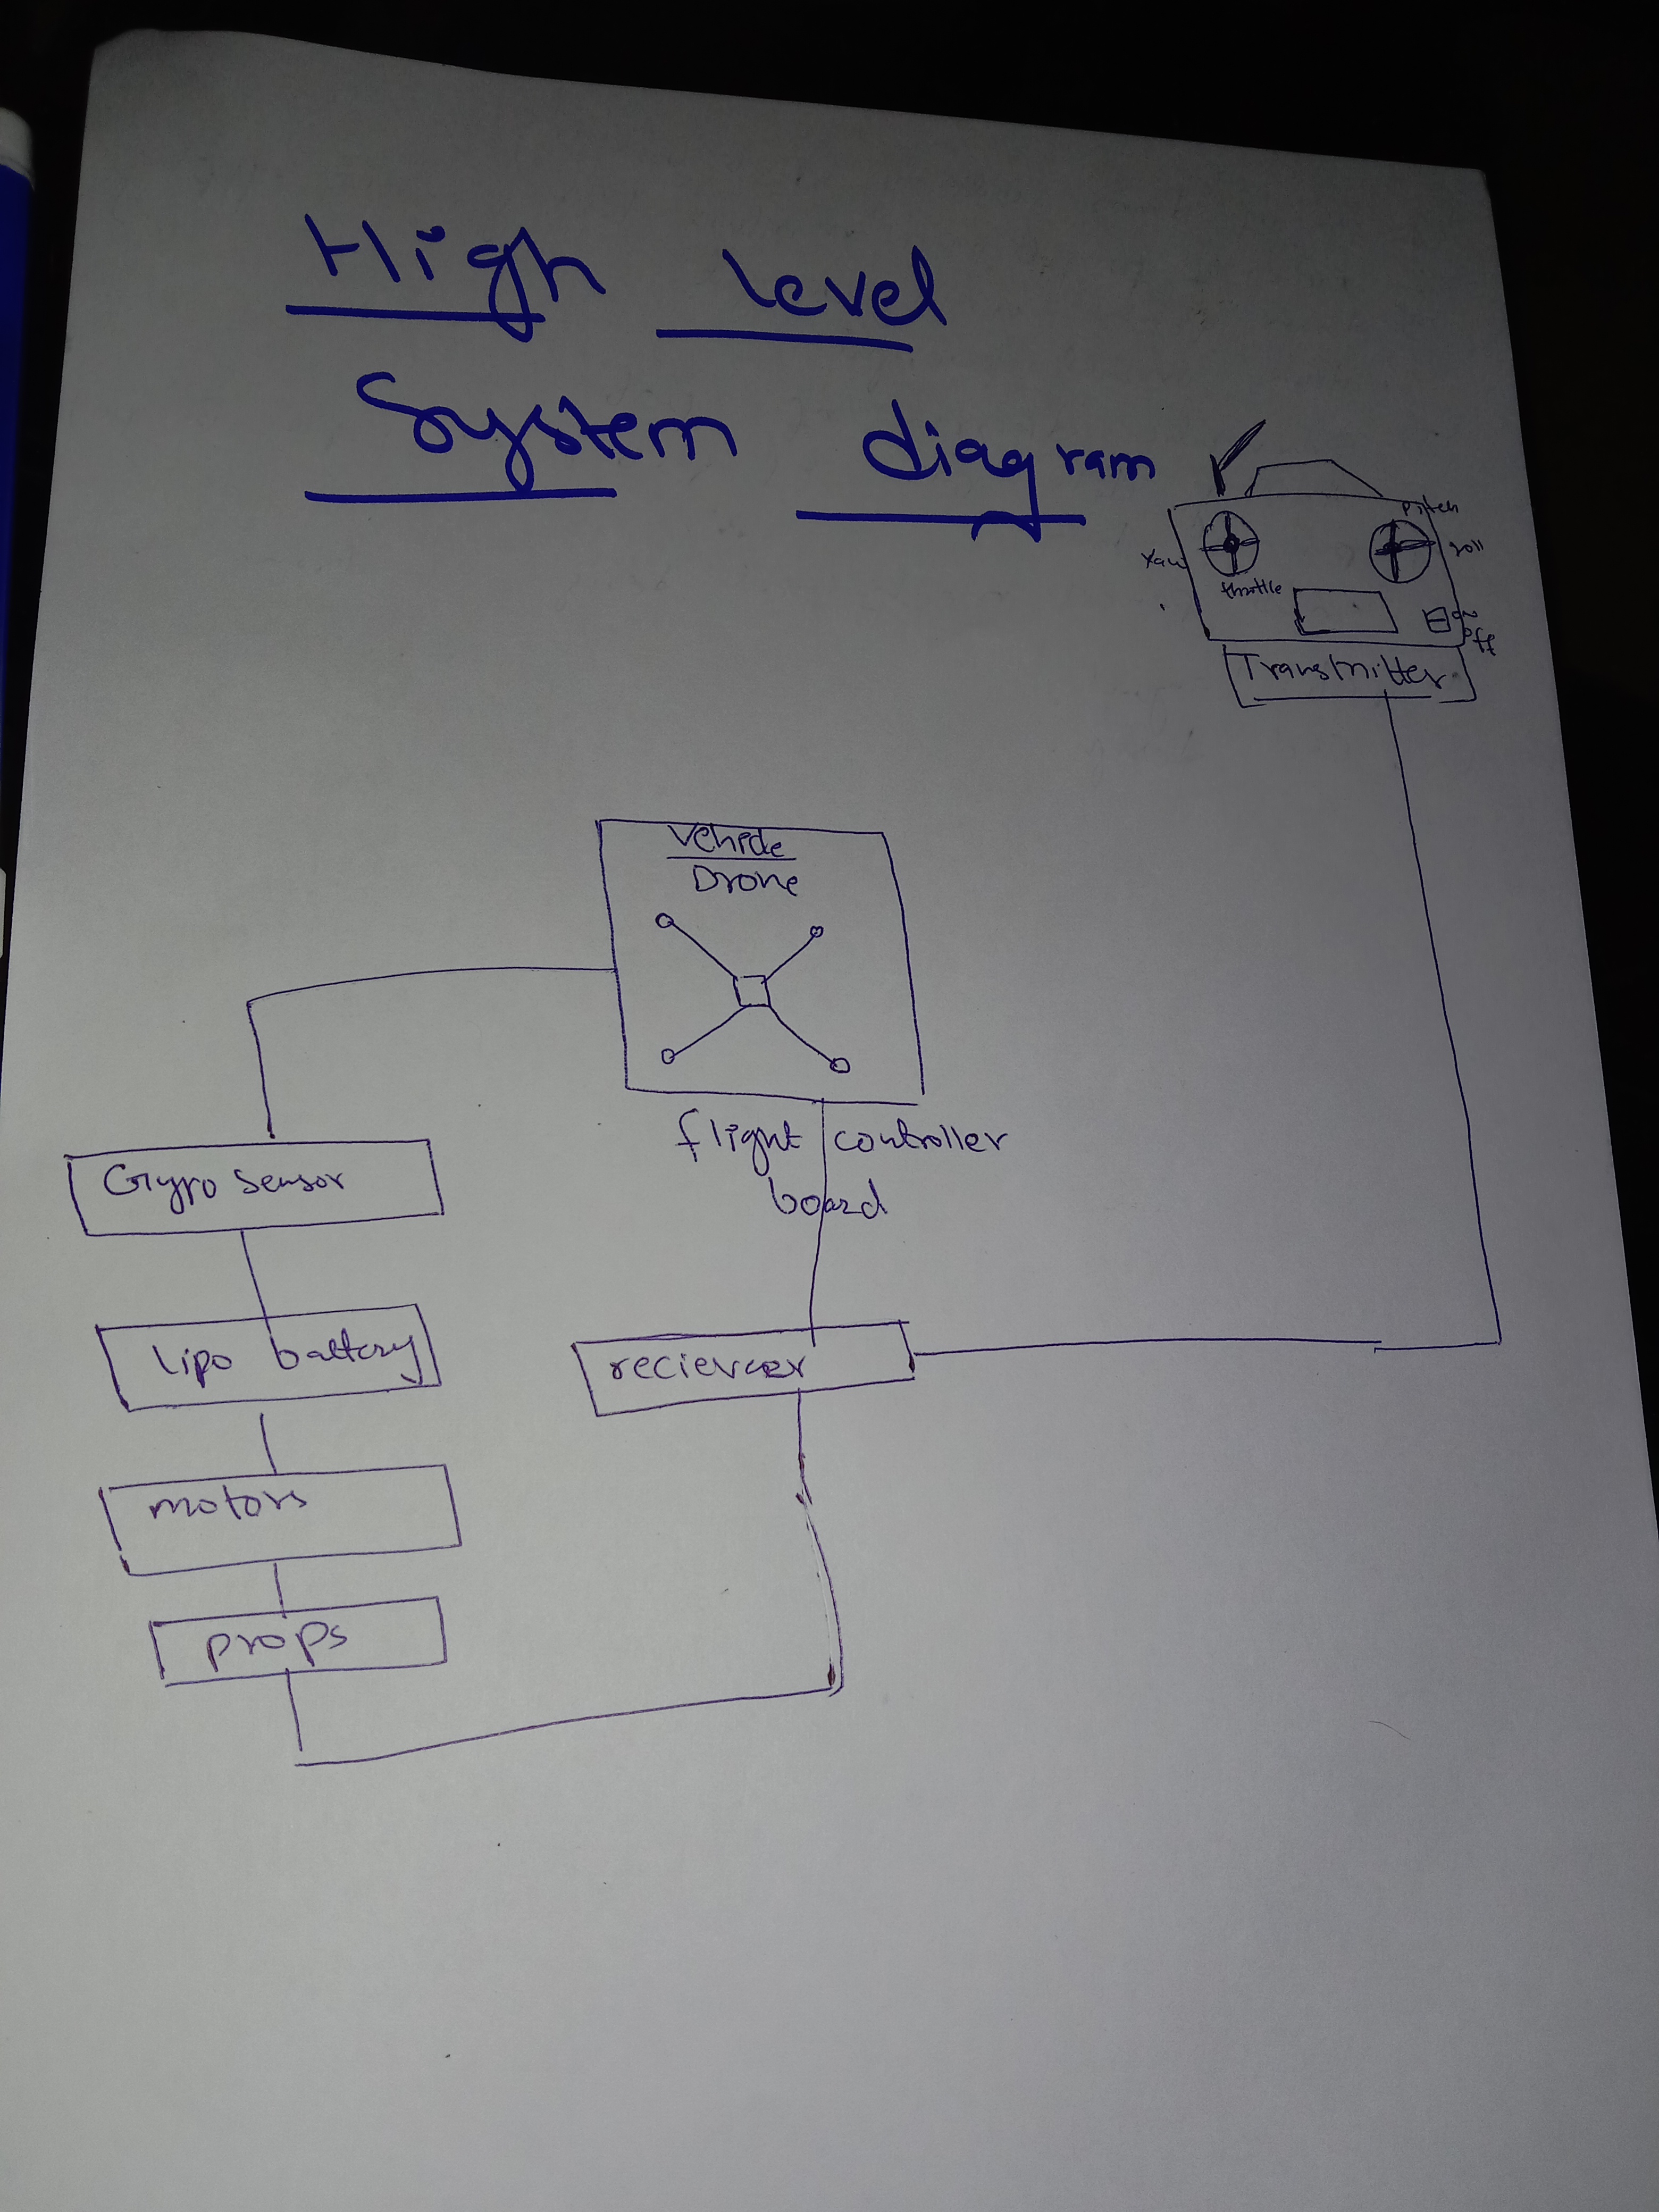 High Level
System diagram
Pitch
Yaw
roll
throttle
on
off
Transmitter
Vehicle
Drone
flight controller
board
Gyro sensor
lipo battery
motors
props